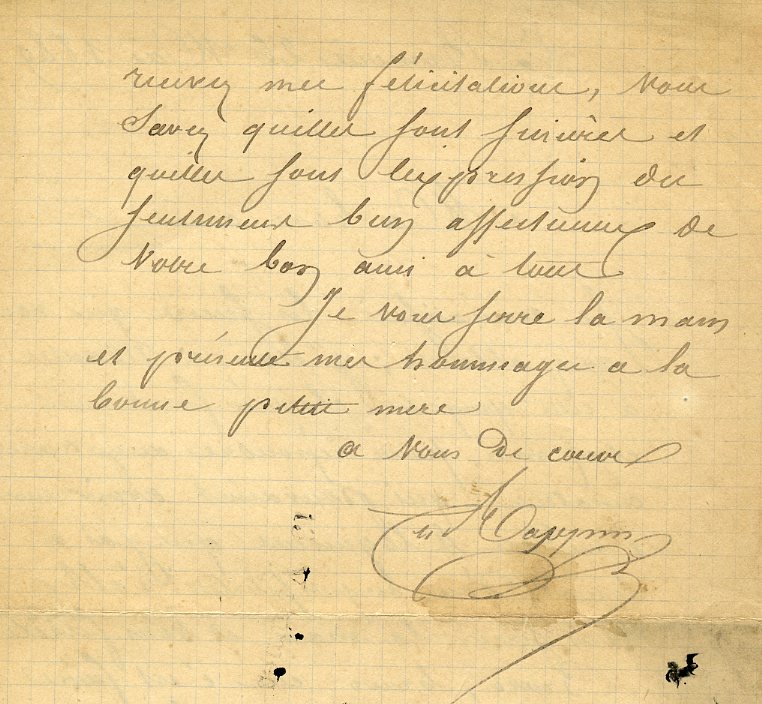 recevez mes félicitations, vous
savez quelles sont sincères et
quelles sont l'expression des
sentiments bien affectueux de
votre bon ami à tous
Je vous serre la main
et présente mes hommages a la
bonne petite mere
a vous De coeur